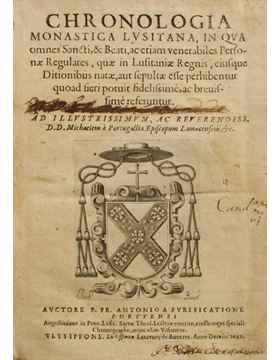 CHRONOLOGIA
MONASTICA LVSITANA, IN QVA
omnes Sancti, & Beati, ac etiam venerabiles Perso-
næ Regulares, quæ in Lusitaniæ Regnis, eiusque
Ditionibus natæ, aut sepultæ esse perhibentur
quoad fieri potuit fidelissimè, ac breuis-
simè referuntur.
AD ILLVSTRISSIMVM, AC REVERENDISS.
D. D. Michaelem à Portugallia Episcopum Lamacensem, &c.
AVCTORE P. FR. ANTONIO A PVRIFICATIONE
PORTVENSI
Augustiniano in Prou. Lusit. Sacræ Theol. Lectore emerito, eiusdemque speciali
Chronographo, atque olim Visitatore.
VLYSIPPONE. Ex Officina Laurentij de Anueres. Anno Domini